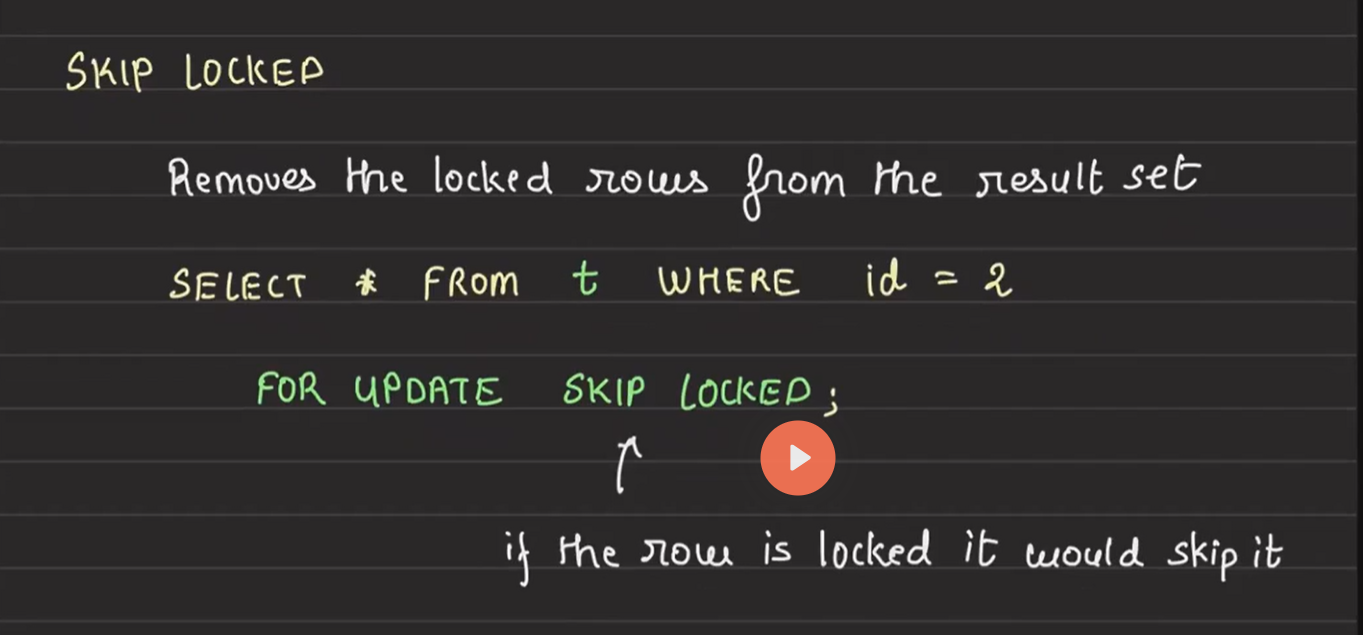 SKIP LOCKED
Removes the locked rows from the result set
SELECT * FROM t WHERE id = 2
FOR UPDATE SKIP LOCKED;
if the row is locked it would skip it